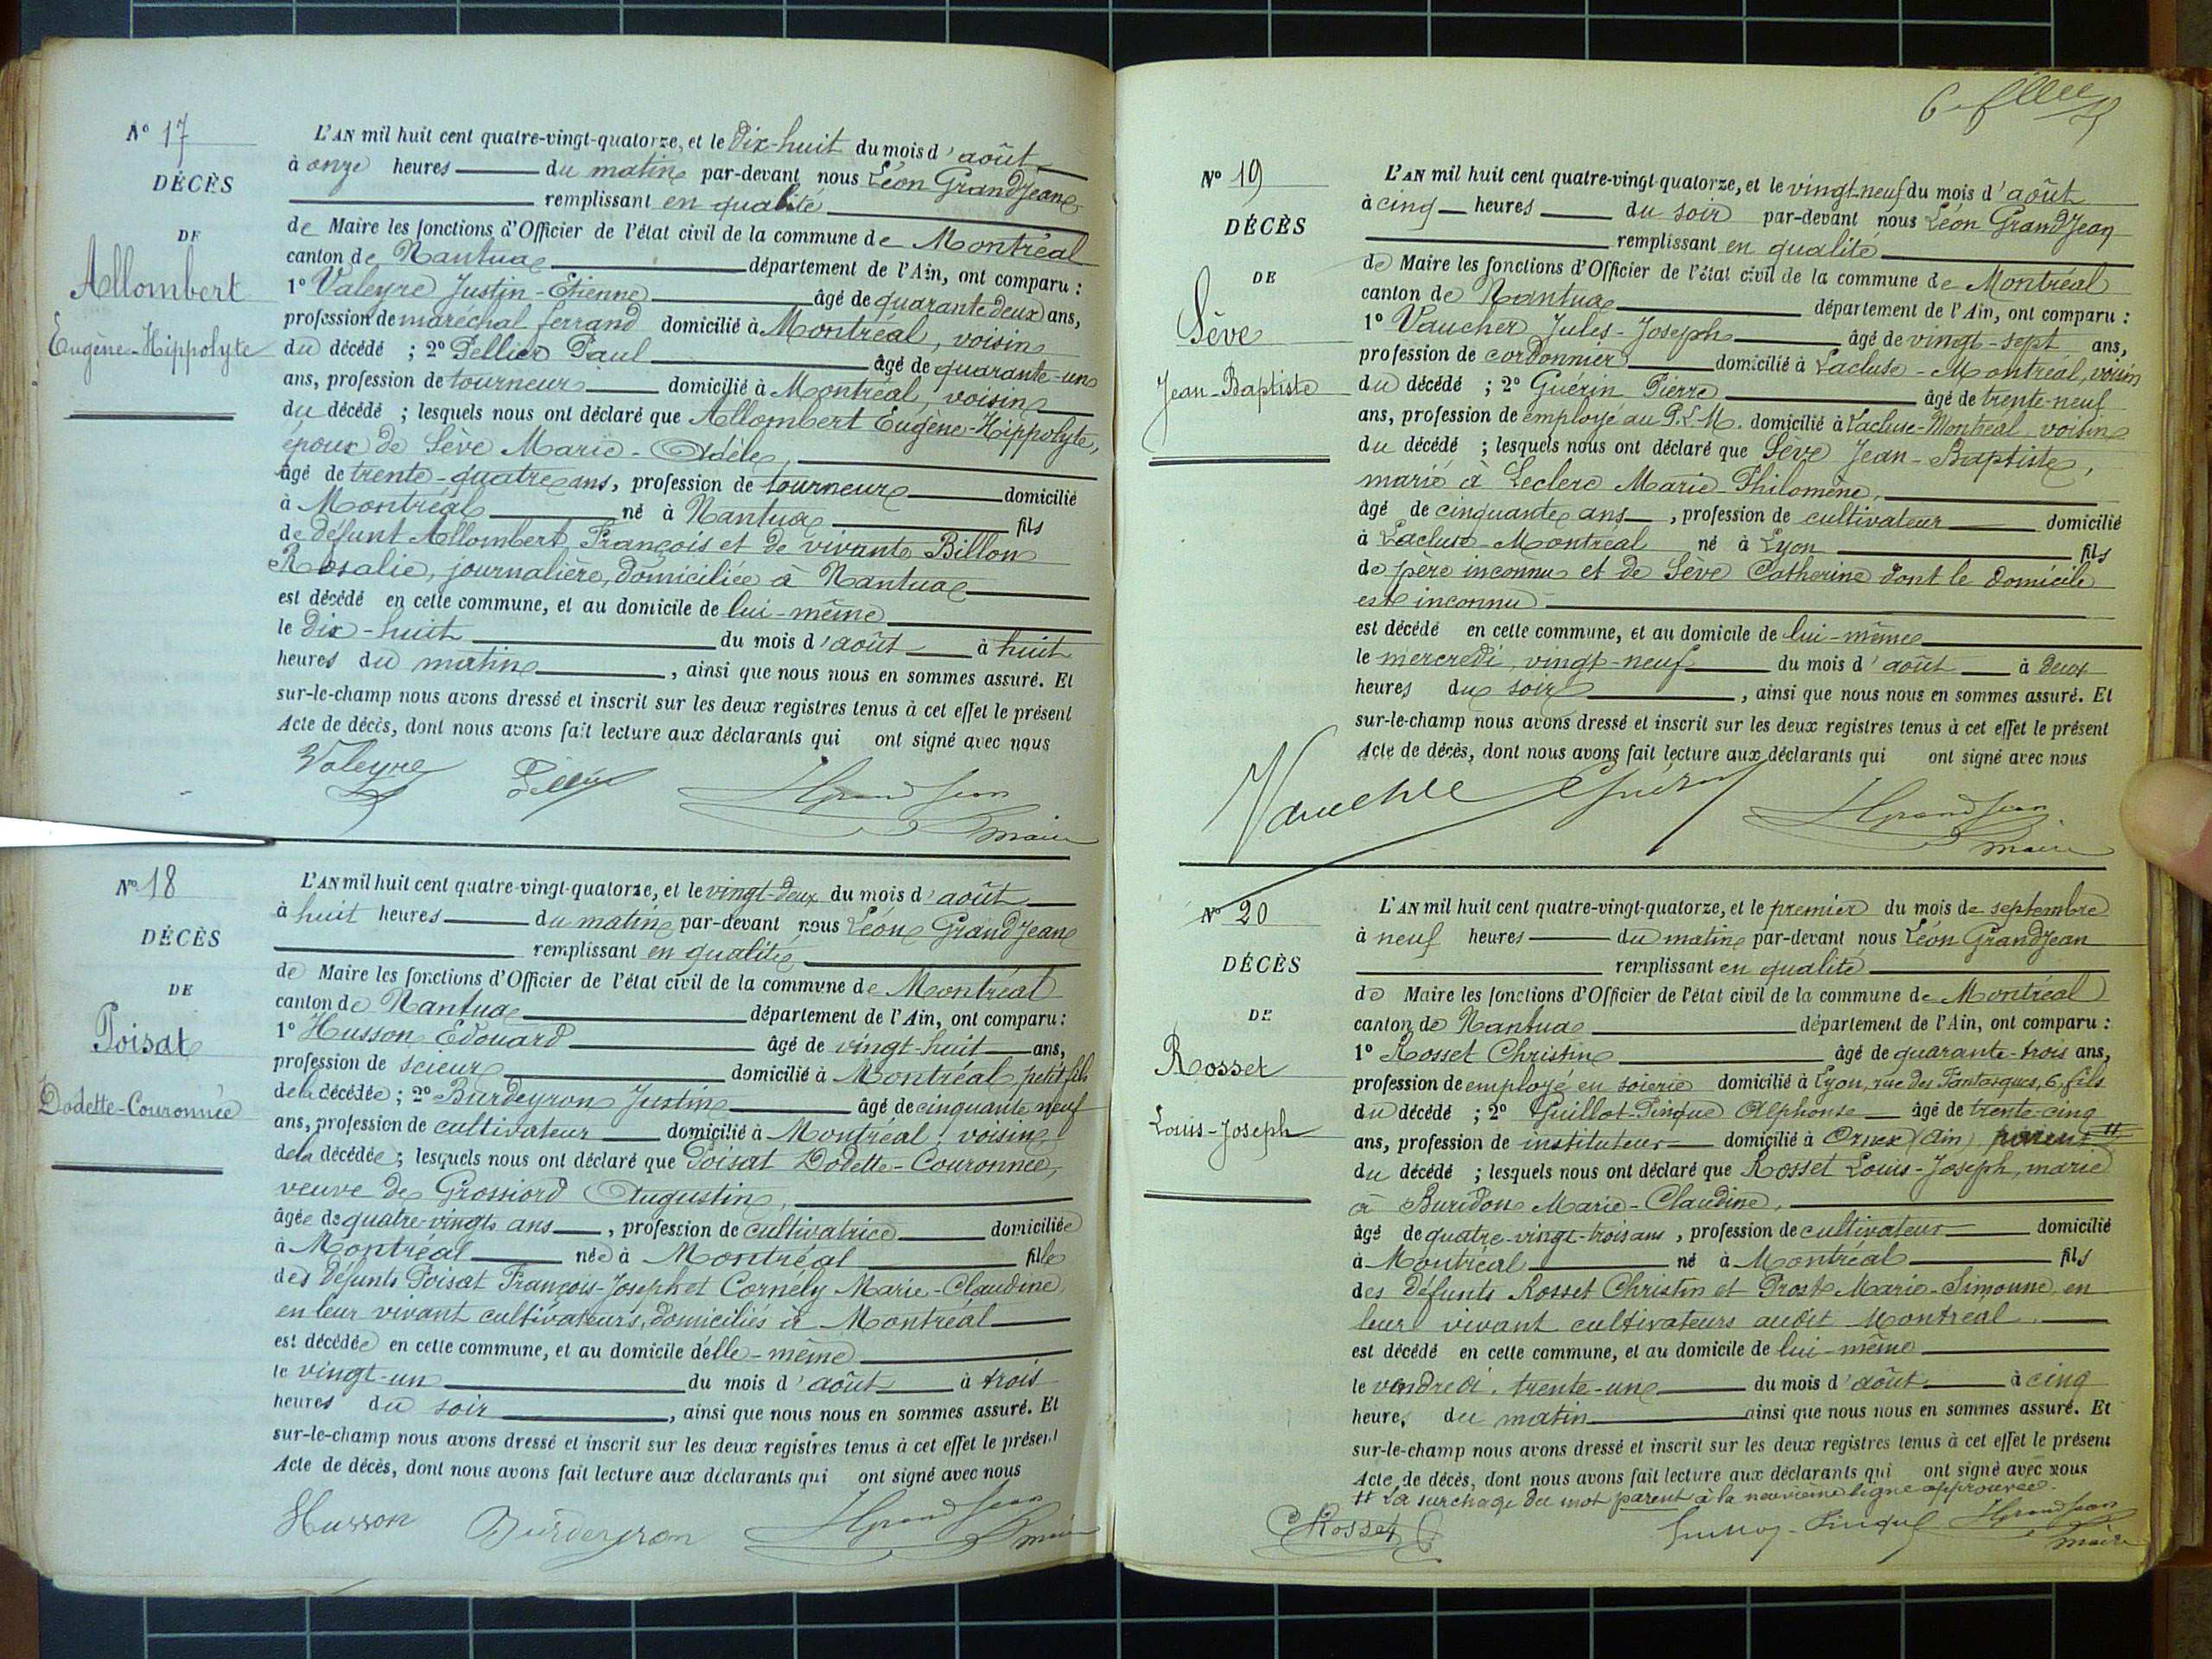 N° 17
DÉCÈS
DE
Allombert
Eugène-Hippolyte
L'AN mil huit cent quatre-vingt-quatorze, et le dix-huit du mois d'août
à onze heures du matin par-devant nous Léon GrandJean
remplissant en qualité
de Maire les fonctions d'Officier de l'état civil de la commune de Montréal
canton de Nantua département de l'Ain, ont comparu :
1° Valeyre Justin-Etienne âgé de quarante deux ans,
profession de maréchal ferrand domicilié à Montréal, voisin
du décédé ; 2° Pellier Paul âgé de quarante-un
ans, profession de tourneur domicilié à Montréal, voisin
du décédé ; lesquels nous ont déclaré que Allombert Eugène-Hippolyte,
époux de Sève Marie-Adèle,
âgé de trente-quatre ans, profession de tourneur domicilié
à Montréal né à Nantua fils
de défunt Allombert François et de vivante Billon
Rosalie, journalière, domiciliée à Nantua
est décédé en cette commune, et au domicile de lui-même
le dix-huit du mois d'août à huit
heures du matin, ainsi que nous nous en sommes assuré. Et
sur-le-champ nous avons dressé et inscrit sur les deux registres tenus à cet effet le présent
Acte de décès, dont nous avons fait lecture aux déclarants qui ont signé avec nous
Valeyre GrandJean
maire
N° 18
DÉCÈS
DE
Poisat
Dodette-Couronnée
L'AN mil huit cent quatre-vingt-quatorze, et le vingt-deux du mois d'août
à huit heures du matin par-devant nous Léon GrandJean
remplissant en qualité
de Maire les fonctions d'Officier de l'état civil de la commune de Montréal
canton de Nantua département de l'Ain, ont comparu :
1° Husson Edouard âgé de vingt-huit ans,
profession de scieur domicilié à Montréal, petit fils
de la décédée ; 2° Burdeyron Justin âgé de cinquante neuf
ans, profession de cultivateur domicilié à Montréal, voisin
de la décédée ; lesquels nous ont déclaré que Poisat Dodette-Couronnée,
veuve de Grossiord Augustin,
âgée de quatre-vingts ans, profession de cultivatrice domiciliée
à Montréal née à Montréal fille
des défunts Poisat François-Joseph et Cornély Marie-Claudine,
en leur vivant cultivateurs, domiciliés à Montréal
est décédée en cette commune, et au domicile d'elle-même
le vingt-un du mois d'août à trois
heures du soir, ainsi que nous nous en sommes assuré. Et
sur-le-champ nous avons dressé et inscrit sur les deux registres tenus à cet effet le présent
Acte de décès, dont nous avons fait lecture aux déclarants qui ont signé avec nous
Husson Burdeyron GrandJean
maire
N° 19
DÉCÈS
DE
Sève
Jean-Baptiste
L'AN mil huit cent quatre-vingt-quatorze, et le vingt-neuf du mois d'août
à cinq heures du soir par-devant nous Léon GrandJean
remplissant en qualité
de Maire les fonctions d'Officier de l'état civil de la commune de Montréal
canton de Nantua département de l'Ain, ont comparu :
1° Vaucher Jules-Joseph âgé de vingt-sept ans,
profession de cordonnier domicilié à Lacluse-Montréal, voisin
du décédé ; 2° Guérin Pierre âgé de trente-neuf
ans, profession de employé au P.L.M. domicilié à Lacluse-Montréal, voisin
du décédé ; lesquels nous ont déclaré que Sève Jean-Baptiste,
marié à Leclerc Marie-Philomène,
âgé de cinquante ans, profession de cultivateur domicilié
à Lacluse-Montréal né à Lyon fils
de père inconnu et de Sève Catherine dont le domicile
est inconnu
est décédé en cette commune, et au domicile de lui-même
le mercredi, vingt-neuf du mois d'août à deux
heures du soir, ainsi que nous nous en sommes assuré. Et
sur-le-champ nous avons dressé et inscrit sur les deux registres tenus à cet effet le présent
Acte de décès, dont nous avons fait lecture aux déclarants qui ont signé avec nous
Guérin GrandJean
maire
N° 20
DÉCÈS
DE
Rosset
Louis-Joseph
L'AN mil huit cent quatre-vingt-quatorze, et le premier du mois de septembre
à neuf heures du matin par-devant nous Léon GrandJean
remplissant en qualité
de Maire les fonctions d'Officier de l'état civil de la commune de Montréal
canton de Nantua département de l'Ain, ont comparu :
1° Rosset Christin âgé de quarante-trois ans,
profession de employé en soierie domicilié à Lyon, rue des Fantasques, 6, fils
du décédé ; 2° Guillot-Pingue Alphonse âgé de trente-cinq
ans, profession de instituteur domicilié à Ornex (Ain) parent #
du décédé ; lesquels nous ont déclaré que Rosset Louis-Joseph, marié
à Buridon Marie-Claudine,
âgé de quatre-vingt-trois ans, profession de cultivateur domicilié
à Montréal né à Montréal fils
des défunts Rosset Christin et Prost Marie-Simonne, en
leur vivant cultivateurs audit Montréal.
est décédé en cette commune, et au domicile de lui-même
le vendredi, trente-un du mois d'août à cinq
heures du matin ainsi que nous nous en sommes assuré. Et
sur-le-champ nous avons dressé et inscrit sur les deux registres tenus à cet effet le présent
Acte de décès, dont nous avons fait lecture aux déclarants qui ont signé avec nous
# La surchage du mot parent à la neuvième ligne approuvée.
CRosset GrandJean
maire